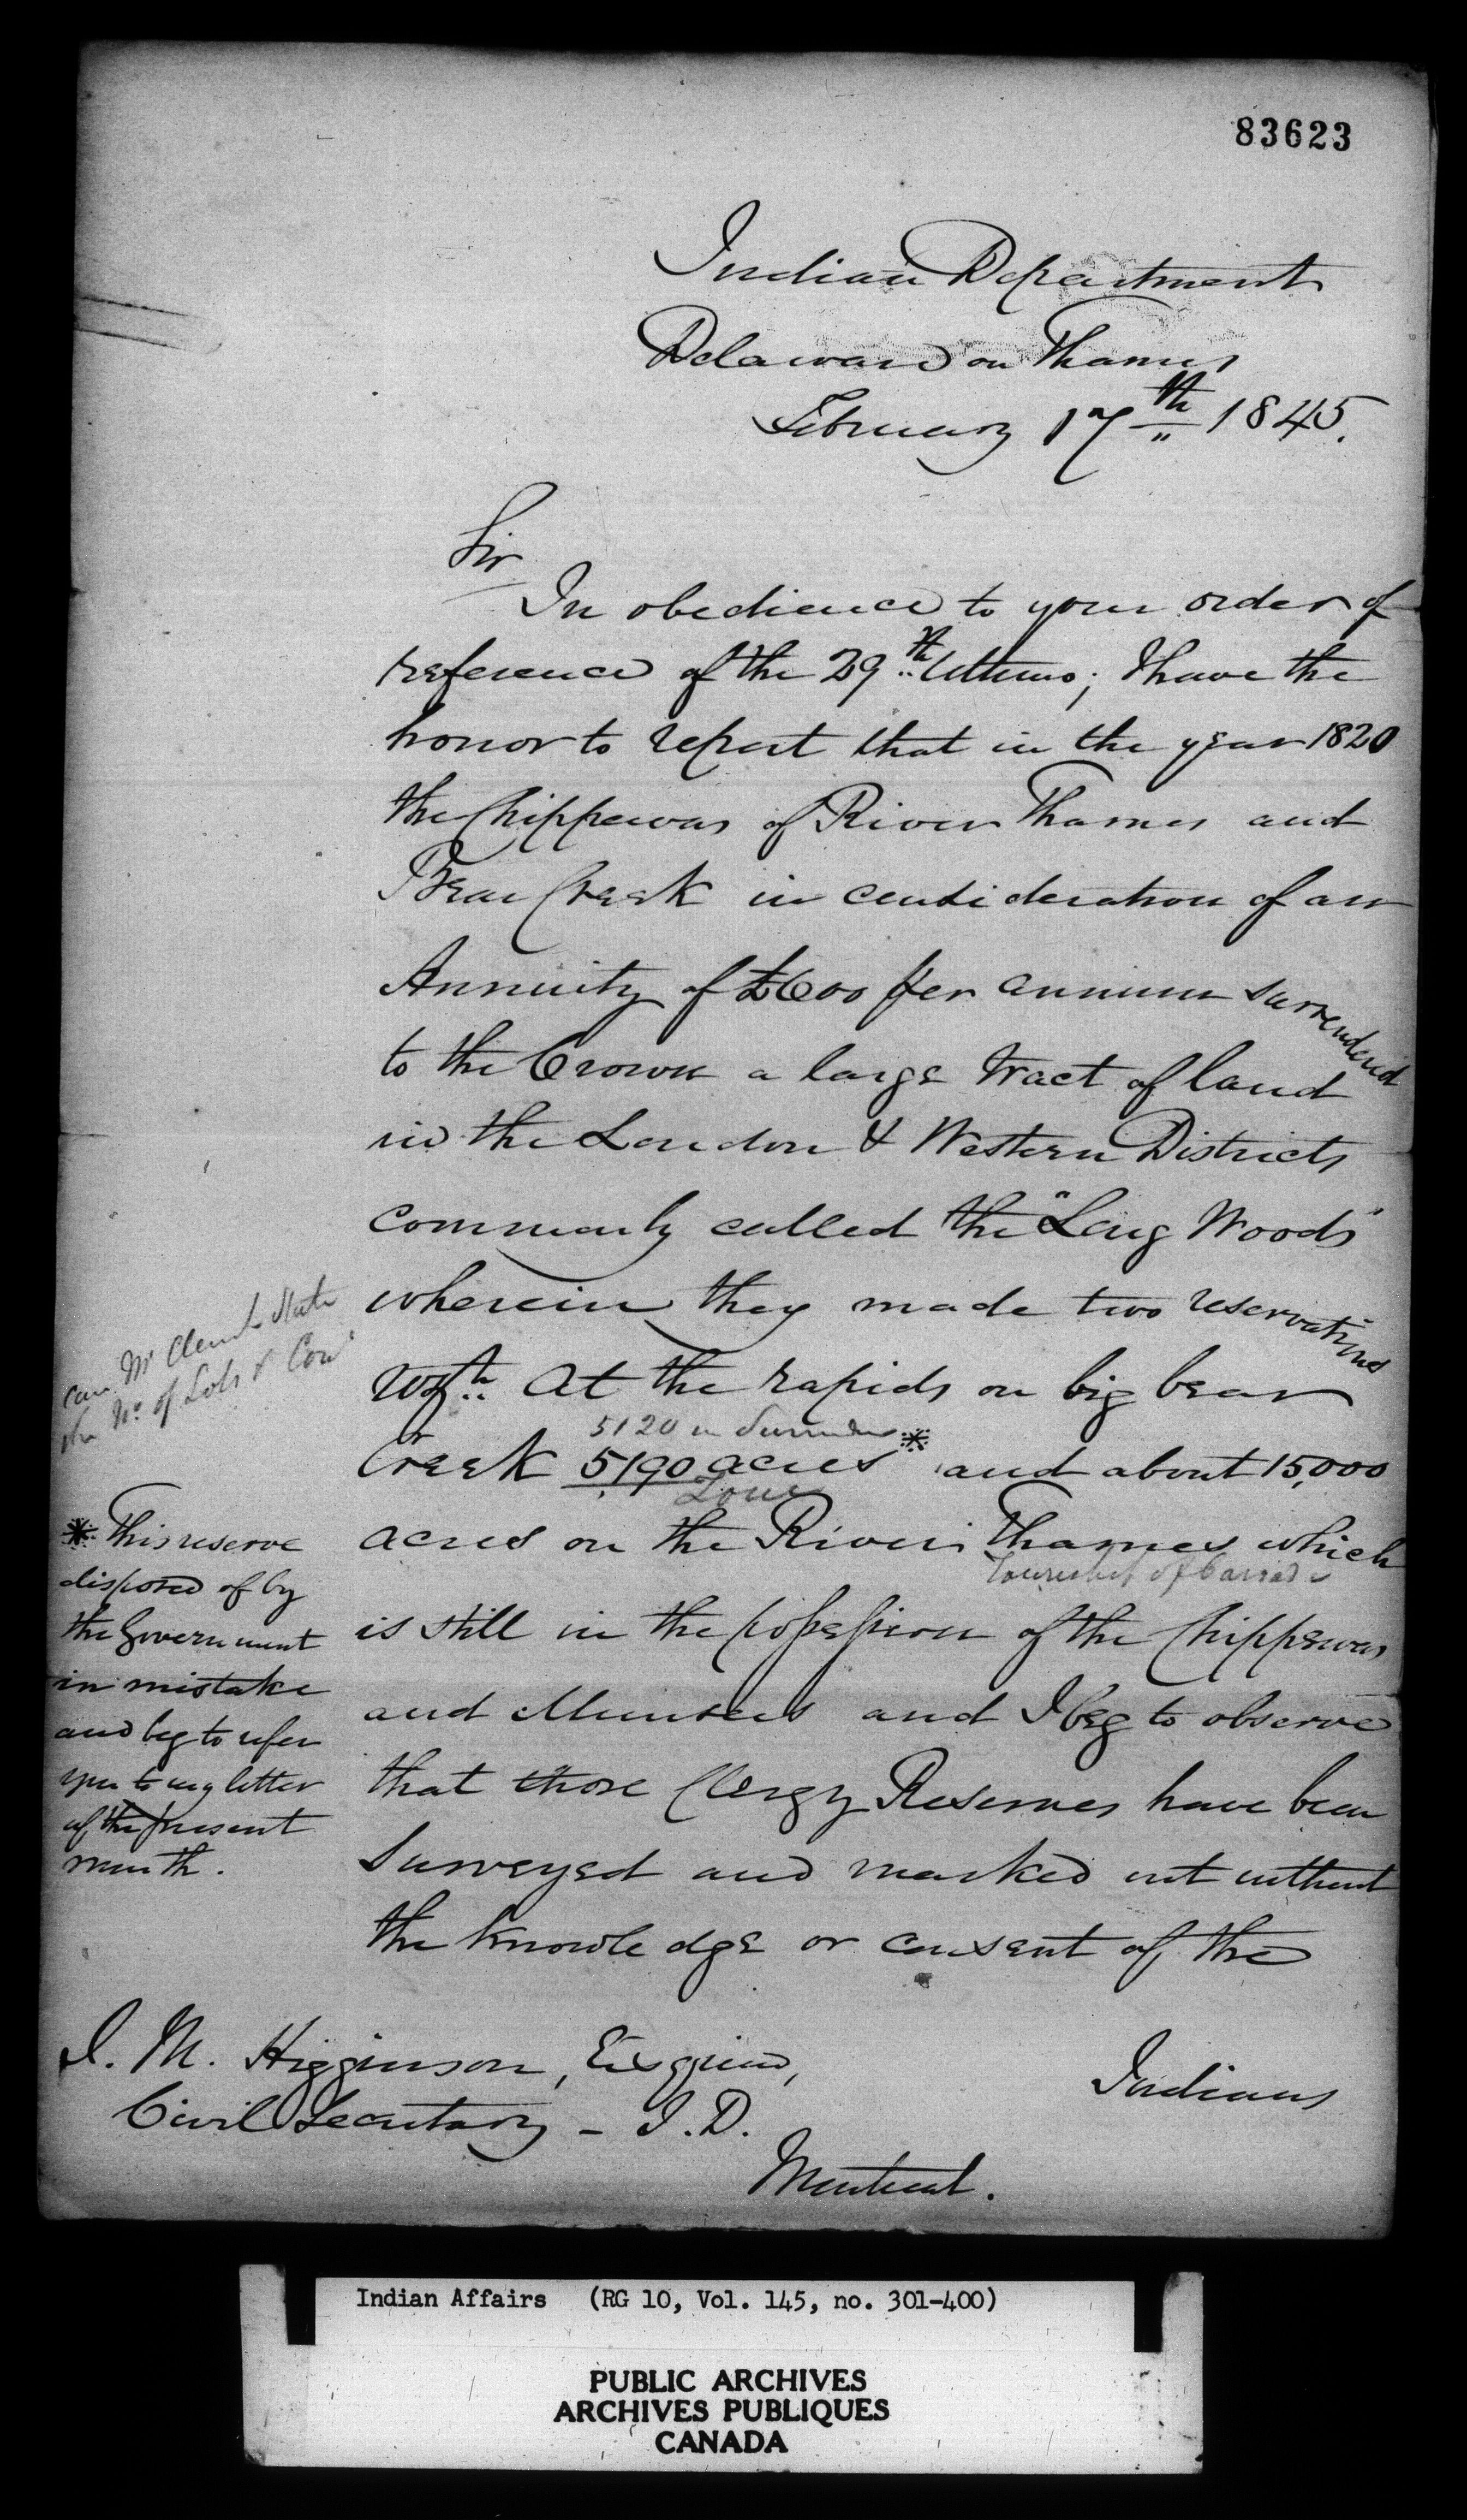 83623
Indian Department
Delaware on Thames
February 17th 1845.
Sir
In obedience to your order of
reference of the 29th Ultimo; I have the
honor to report that in the year 1820
the Chippewas of River Thames and
Bear Creek in consideration of an
Annuity of £600 per annum surrendered
to the Crown a large tract of land
in the London & Western Districts
commonly called the "Long Woods"
wherein they made two reservations
At the rapids on big bear
5120 in Surrender
Creek 5190 acres * and about 15,000
Zone
acres on the River Thames which
Township of Carradoc
is still in the possession of the Chippewas
and Munsees and I beg to observe
that those Clergy Reserves have been
Surveyed and marked out without
the knowledge or consent of the
Indians
can Mr Clench state
the No. of Lots & Con
* This reserve
disposed of by
the Government
in mistake
and beg to refer
you to my letter
of the present
month.
J. M. Higginson, Esquire,
Civil Secretary - I.D.
Montreal.
Indian Affairs (RG 10, Vol. 145, no. 301-400)
PUBLIC ARCHIVES
ARCHIVES PUBLIQUES
CANADA